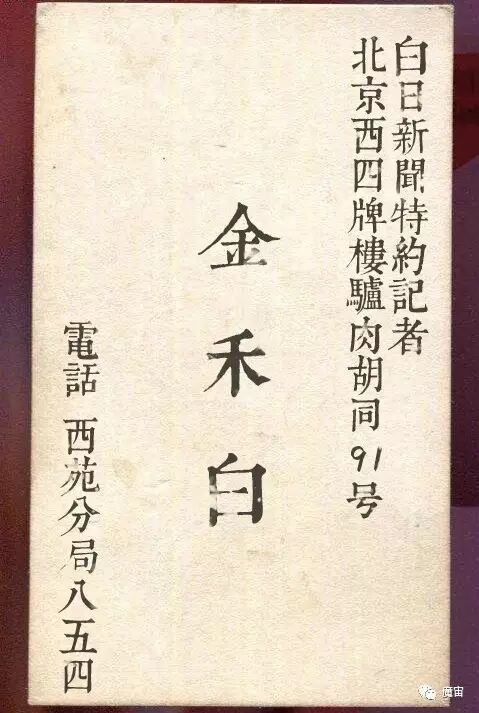 白日新聞特約記者
北京西四牌樓驢肉胡同91号
金禾白
電話 西苑分局八五四
魔宙